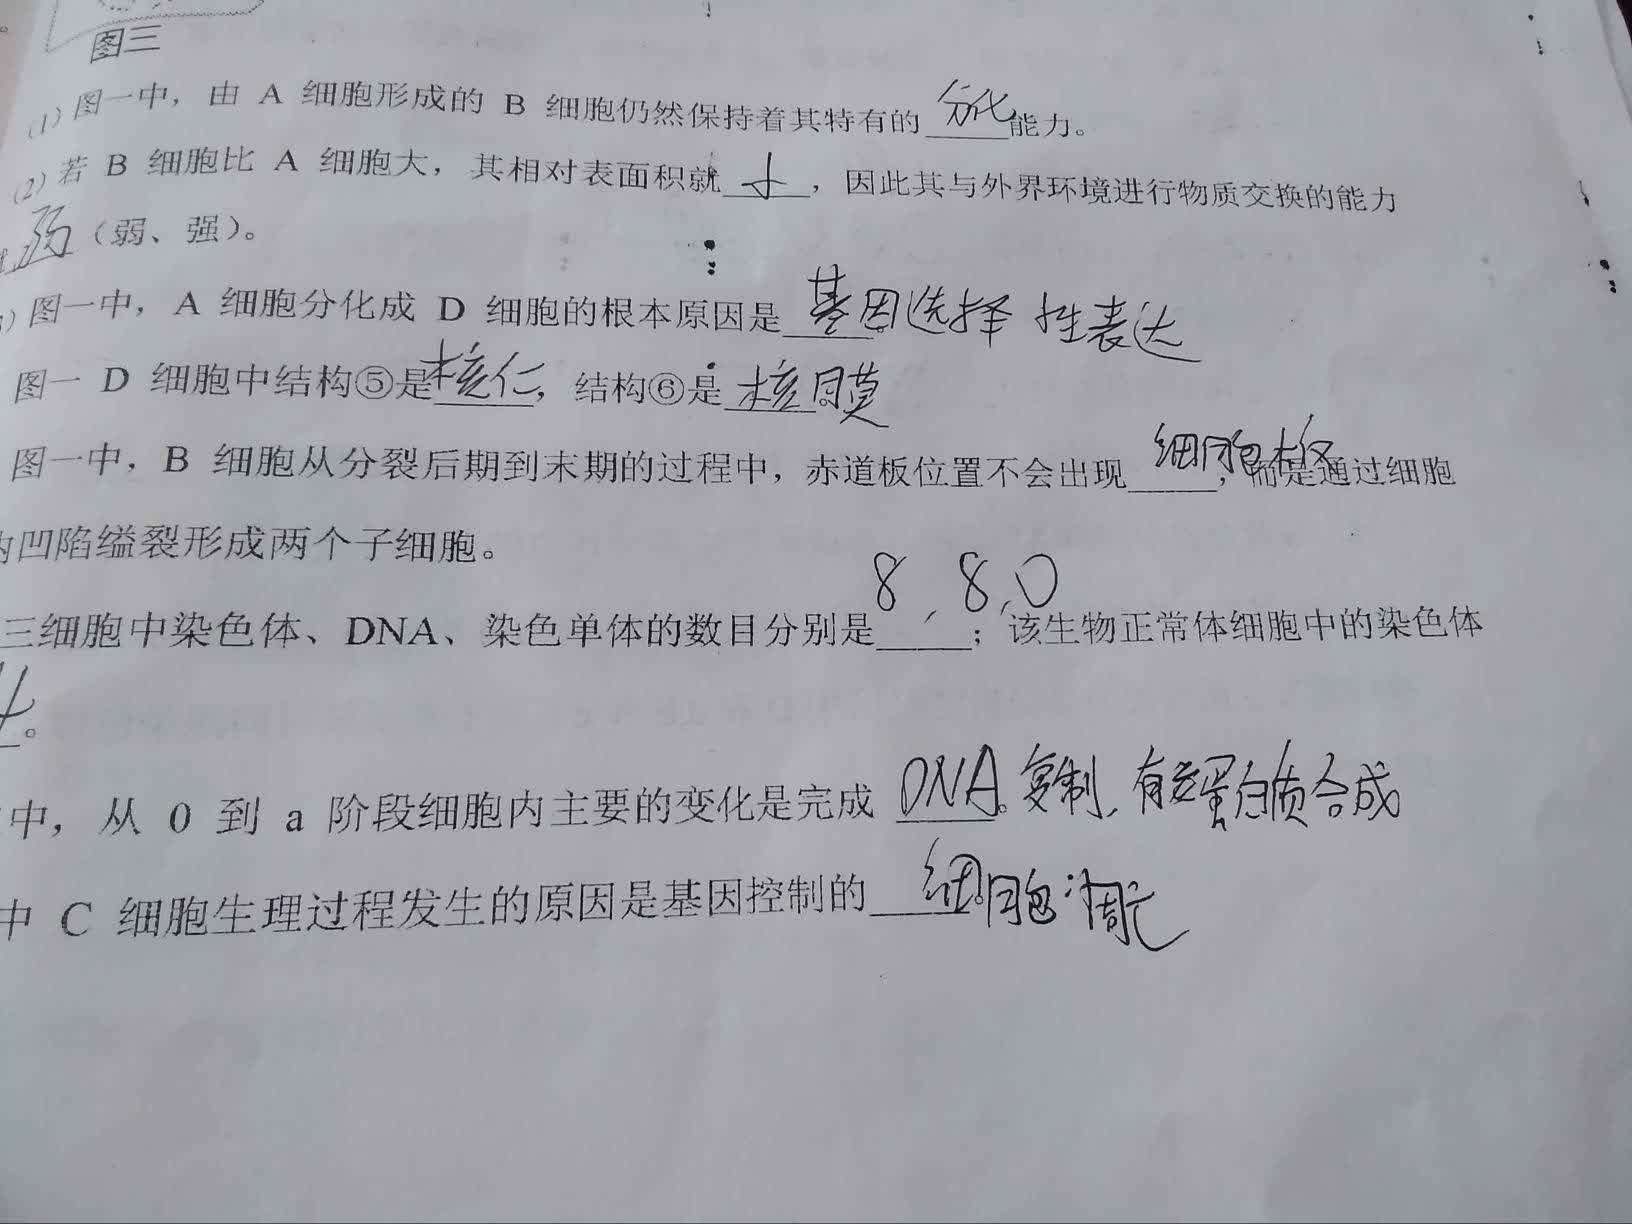 图三
(1) 图一中，由 A 细胞形成的 B 细胞仍然保持着其特有的 分化 能力。
(2) 若 B 细胞比 A 细胞大，其相对表面积就 小 ，因此其与外界环境进行物质交换的能力
弱 （弱、强）。
) 图一中，A 细胞分化成 D 细胞的根本原因是 基因选择性表达
图一 D 细胞中结构⑤是 核仁，结构⑥是 核膜
图一中，B 细胞从分裂后期到末期的过程中，赤道板位置不会出现 细胞板，而是通过细胞
的凹陷缢裂形成两个子细胞。
三细胞中染色体、DNA、染色单体的数目分别是 8，8，0；该生物正常体细胞中的染色体
4。
中，从 0 到 a 阶段细胞内主要的变化是完成 DNA复制，有关蛋白质合成
中 C 细胞生理过程发生的原因是基因控制的 细胞凋亡